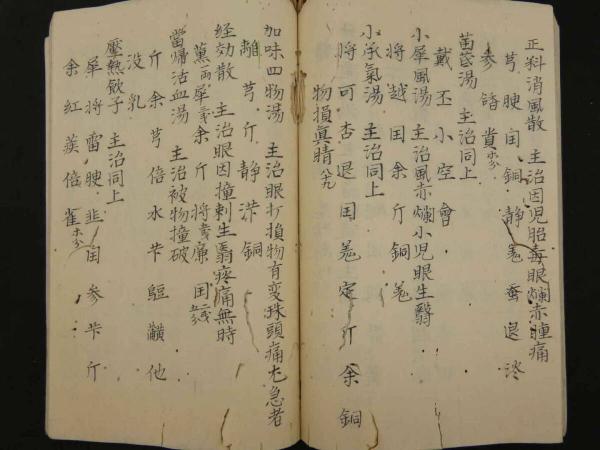 正料消風散 主治因児胎毒眼爛赤腫痛
芎 腴 囯 銅 静 羗 蚕 退
参 䓀 貢 水分
菌蔯湯 主治同上
戴 丕 小 空 會
小犀風湯 主治風赤爛小児眼生翳
將 越 囯 余 斤 銅 羗
小承氣湯 主治同上
將 可 杏 退 囯 羗 定 丁 余 銅
物損眞睛 八十九
加味四物湯 主治眼打損物有変珠頭痛尤急者
離 芎 斤 静 銅
経効散 主治眼因撞刺生翳疼痛無時
犀 余 斤 將 廉 囯
當帰活血湯 主治被物撞破
斤 余 芎 倍 水 芐 他
没 乳
壓熱飲子 主治同上
犀 將 雷 腴 韭 囯 参 芐 斤
余 紅 蒺 倍 雀 水分